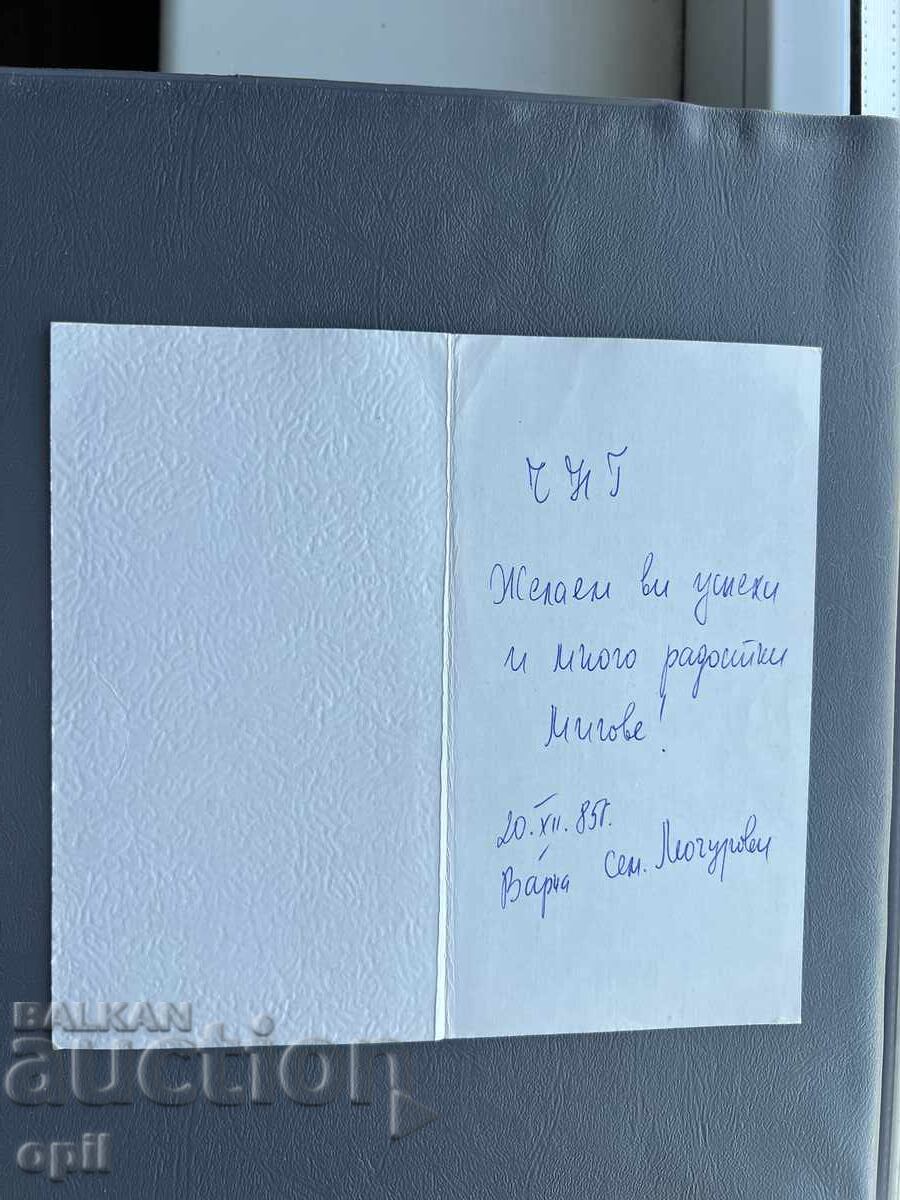 ЧНГ
Желаем ви успехи
и много радостни
мигове!
20.XII.85г.
Варна Сем.
BALKAN
auction
opil